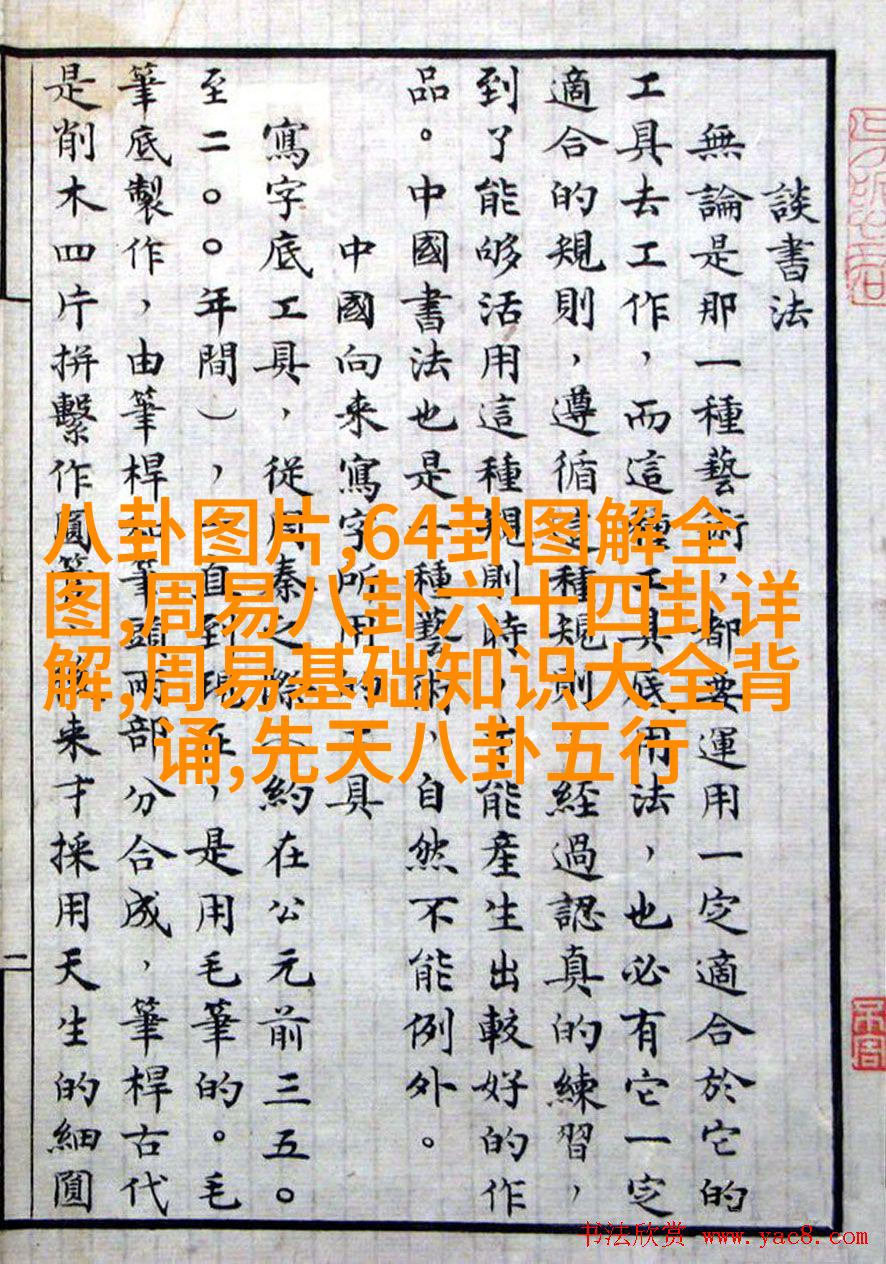 談書法
無論是那一種藝術，都要運用一定適合於它的
工具去工作，而這種工具底用法，也必有它一定
適合的規則，遵循這種規則，經過認真的練習，
到了能够活用這種規則時，才能產生出較好的作
品。中國書法也是一種藝術，自然不能例外。
中國向来寫字所用的工具
寫字底工具，從周秦之際（約在公元前三五〇
至二〇〇年間），一直到現在，是用毛筆的。毛
筆底製作，由筆桿和筆頭兩部分合成，筆桿古代
是削木四片拼繫作圓筒，後来才採用天生的細圓
二
八卦图片,64卦图解全
图,周易八卦六十四卦详
解,周易基础知识大全背
诵,先天八卦五行
书法欣赏 www.yac8.com